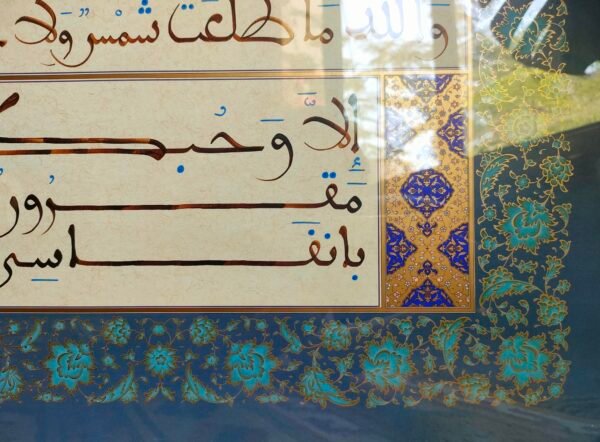 والله ما طلعت شمس ولا
إلا وحبك
مقرور
بانفاسى